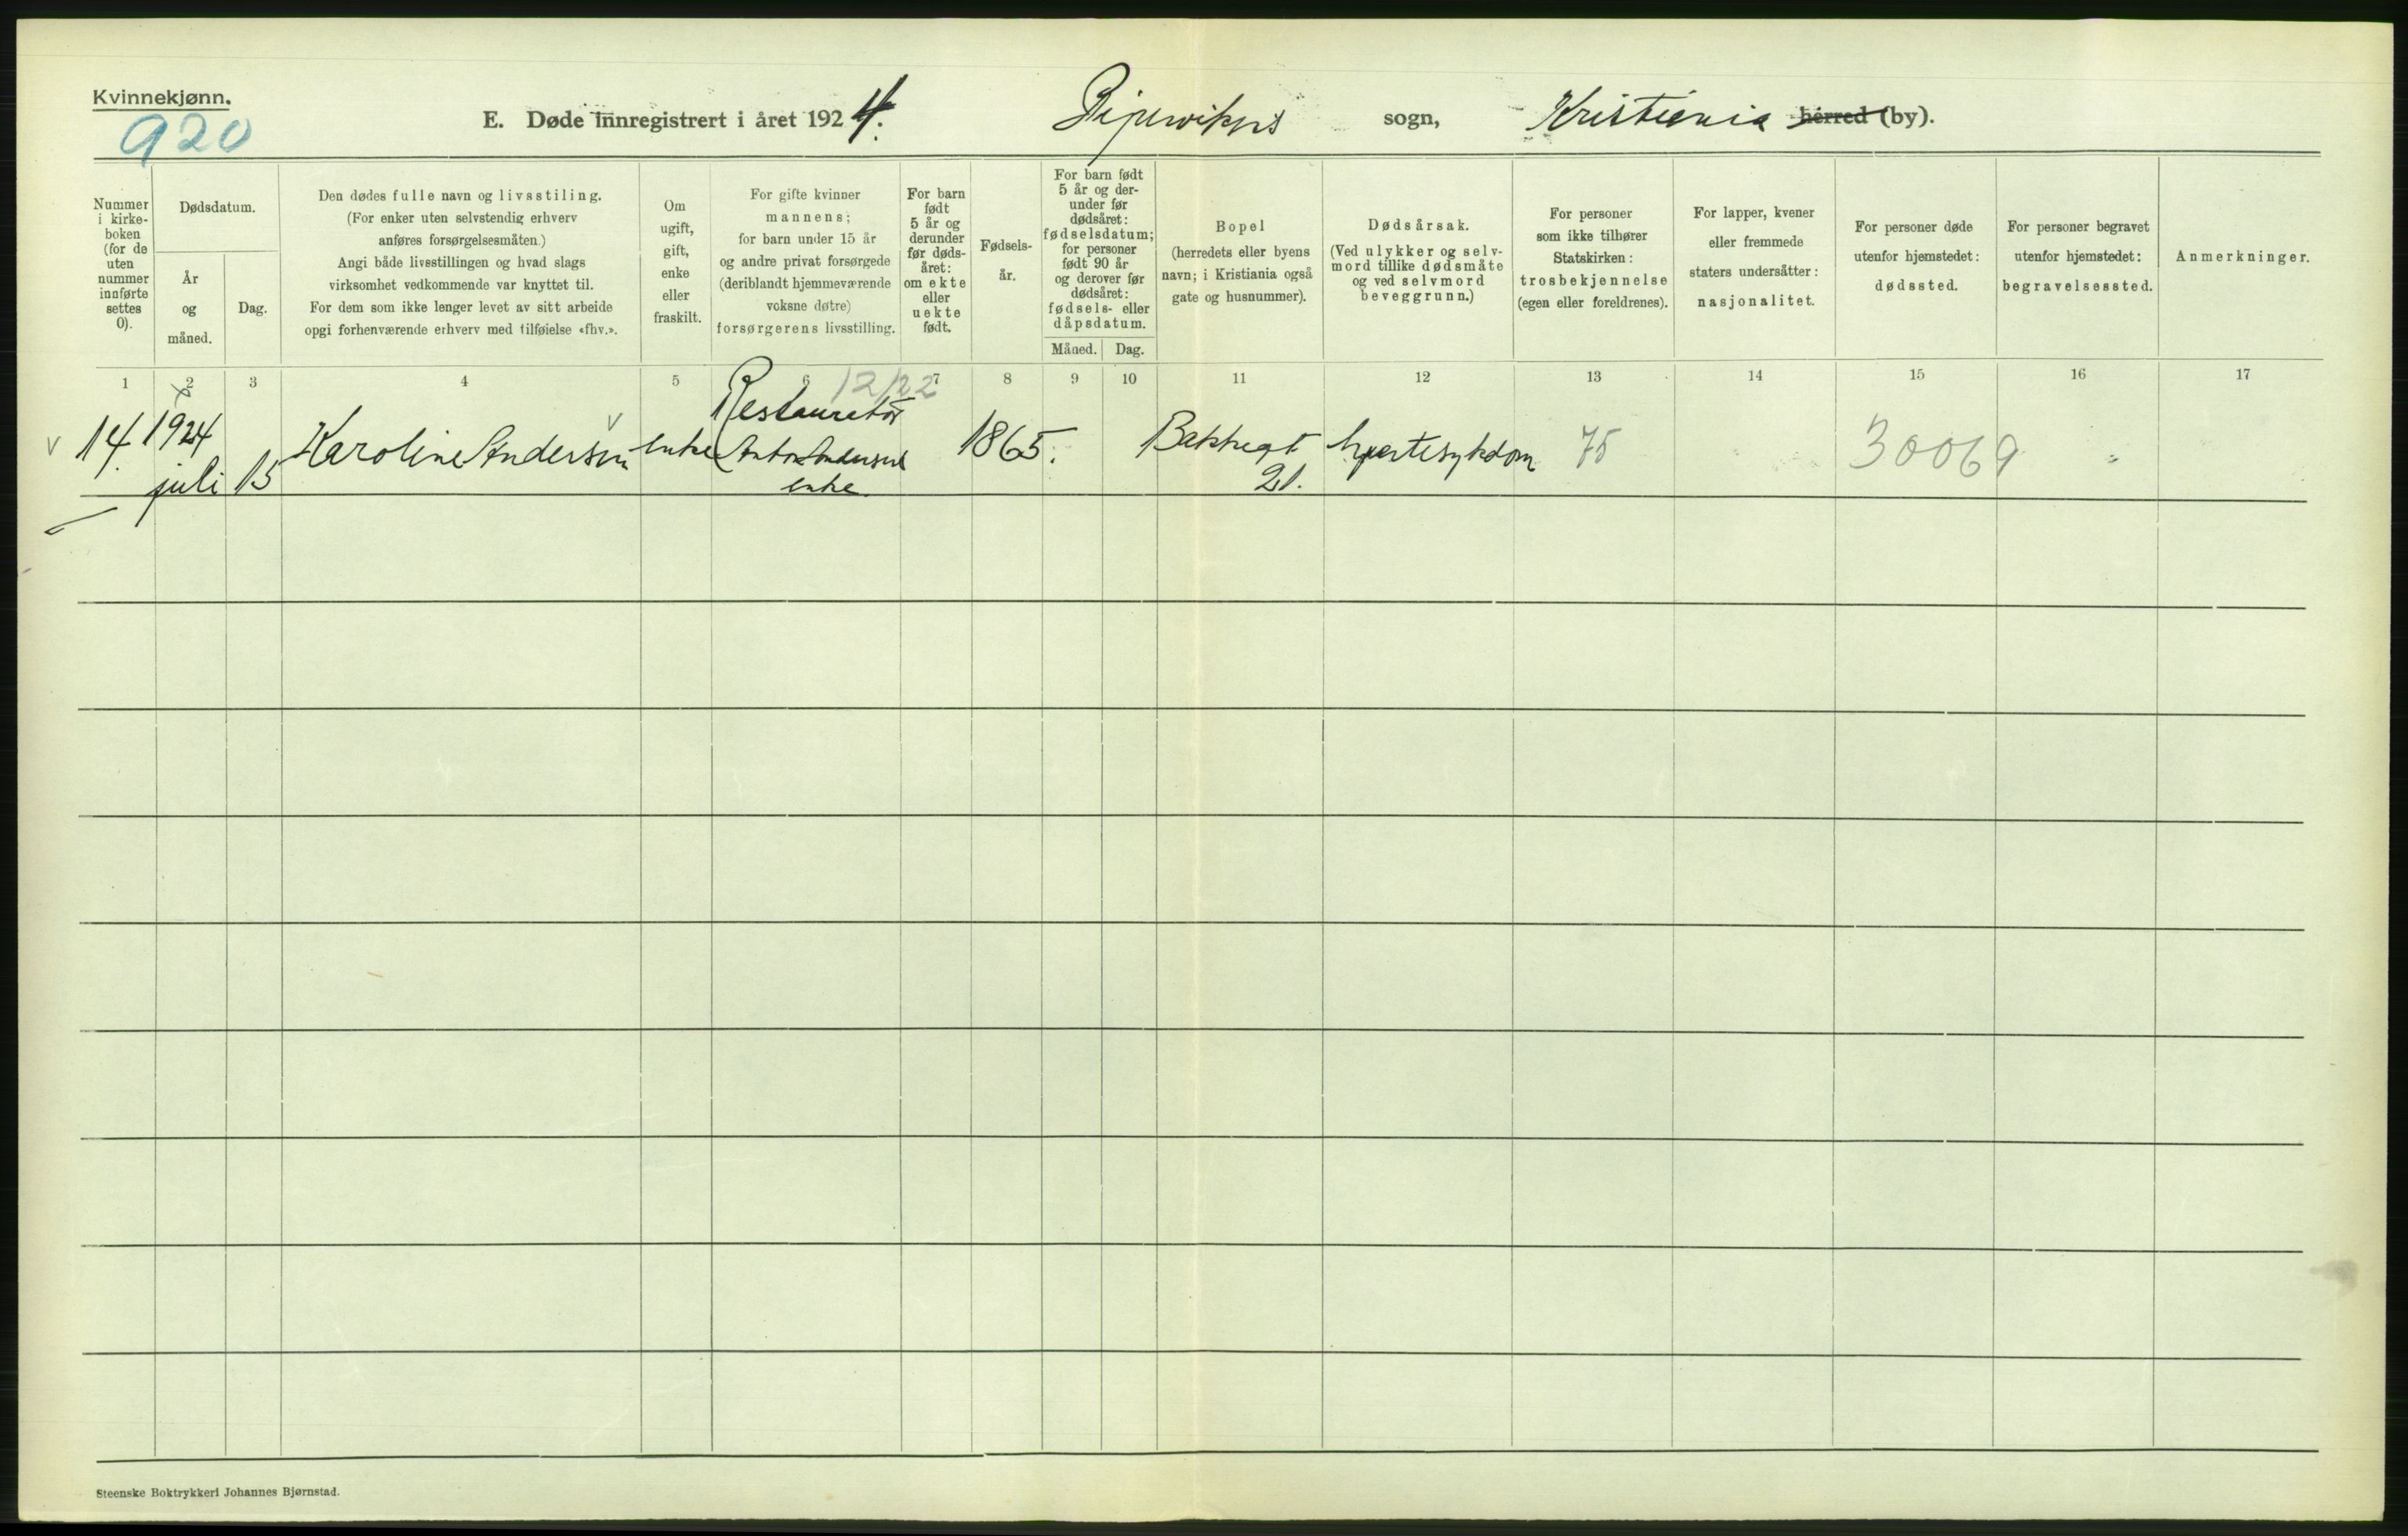 Kvinnekjønn.
920
E. Døde innregistrert i året 1924. Pipervikens sogn, Kristiania herred (by).
Nummer
i kirke-
boken
(for de
uten
nummer
innførte
settes
0).
Dødsdatum.
År
og
måned.
Dag.
Den dødes fulle navn og livsstiling.
(For enker uten selvstendig erhverv
anføres forsørgelsesmåten.)
Angi både livsstillingen og hvad slags
virksomhet vedkommende var knyttet til.
For dem som ikke lenger levet av sitt arbeide
opgi forhenværende erhverv med tilføielse «fhv.».
Om
ugift,
gift,
enke
eller
fraskilt.
For gifte kvinner
mannens;
for barn under 15 år
og andre privat forsørgede
(deriblandt hjemmeværende
voksne døtre)
forsørgerens livsstilling.
For barn
født
5 år og
derunder
før døds-
året:
om ekte
eller
uekte
født.
Fødsels-
år.
For barn født
5 år og der-
under før
dødsåret:
fødselsdatum;
for personer
født 90 år
og derover før
dødsåret:
fødsels- eller
dåpsdatum.
Måned. Dag.
Bopel
(herredets eller byens
navn; i Kristiania også
gate og husnummer).
Dødsårsak.
(Ved ulykker og selv-
mord tillike dødsmåte
og ved selvmord
beveggrunn.)
For personer
som ikke tilhører
Statskirken:
trosbekjennelse
(egen eller foreldrenes).
For lapper, kvener
eller fremmede
staters undersåtter:
nasjonalitet.
For personer døde
utenfor hjemstedet:
dødssted.
For personer begravet
utenfor hjemstedet:
begravelsessted.
Anmerkninger.
1 2 3 4 5 6 7 8 9 10 11 12 13 14 15 16 17
12/22
14. 1924
juli 15
Karoline Andersen
enke
Restauratør
Anton Andersens
enke.
1865.
Bakkegt
21.
hjertesykdom
75
30069
Steenske Boktrykkeri Johannes Bjørnstad.